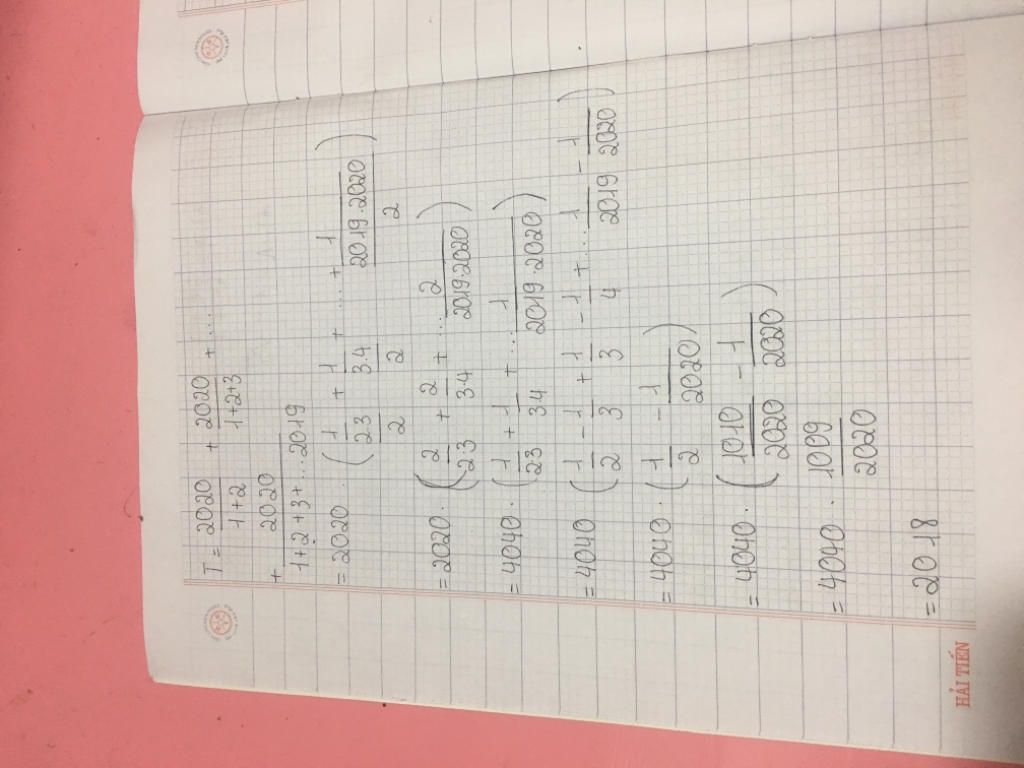 T = 2020/1+2 + 2020/1+2+3 + ....
+ 2020/1+2+3+...2019
= 2020 . (1/(2.3/2) + 1/(3.4/2) + .... + 1/(2019.2020/2))
= 2020 . (2/2.3 + 2/3.4 + ... 2/2019.2020)
= 4040 . (1/2.3 + 1/3.4 + ... 1/2019.2020)
= 4040 (1/2 - 1/3 + 1/3 - 1/4 + ... 1/2019 - 1/2020)
= 4040 . (1/2 - 1/2020)
= 4040 . (1010/2020 - 1/2020)
= 4040 . 1009/2020
= 2018
HẢI TIẾN